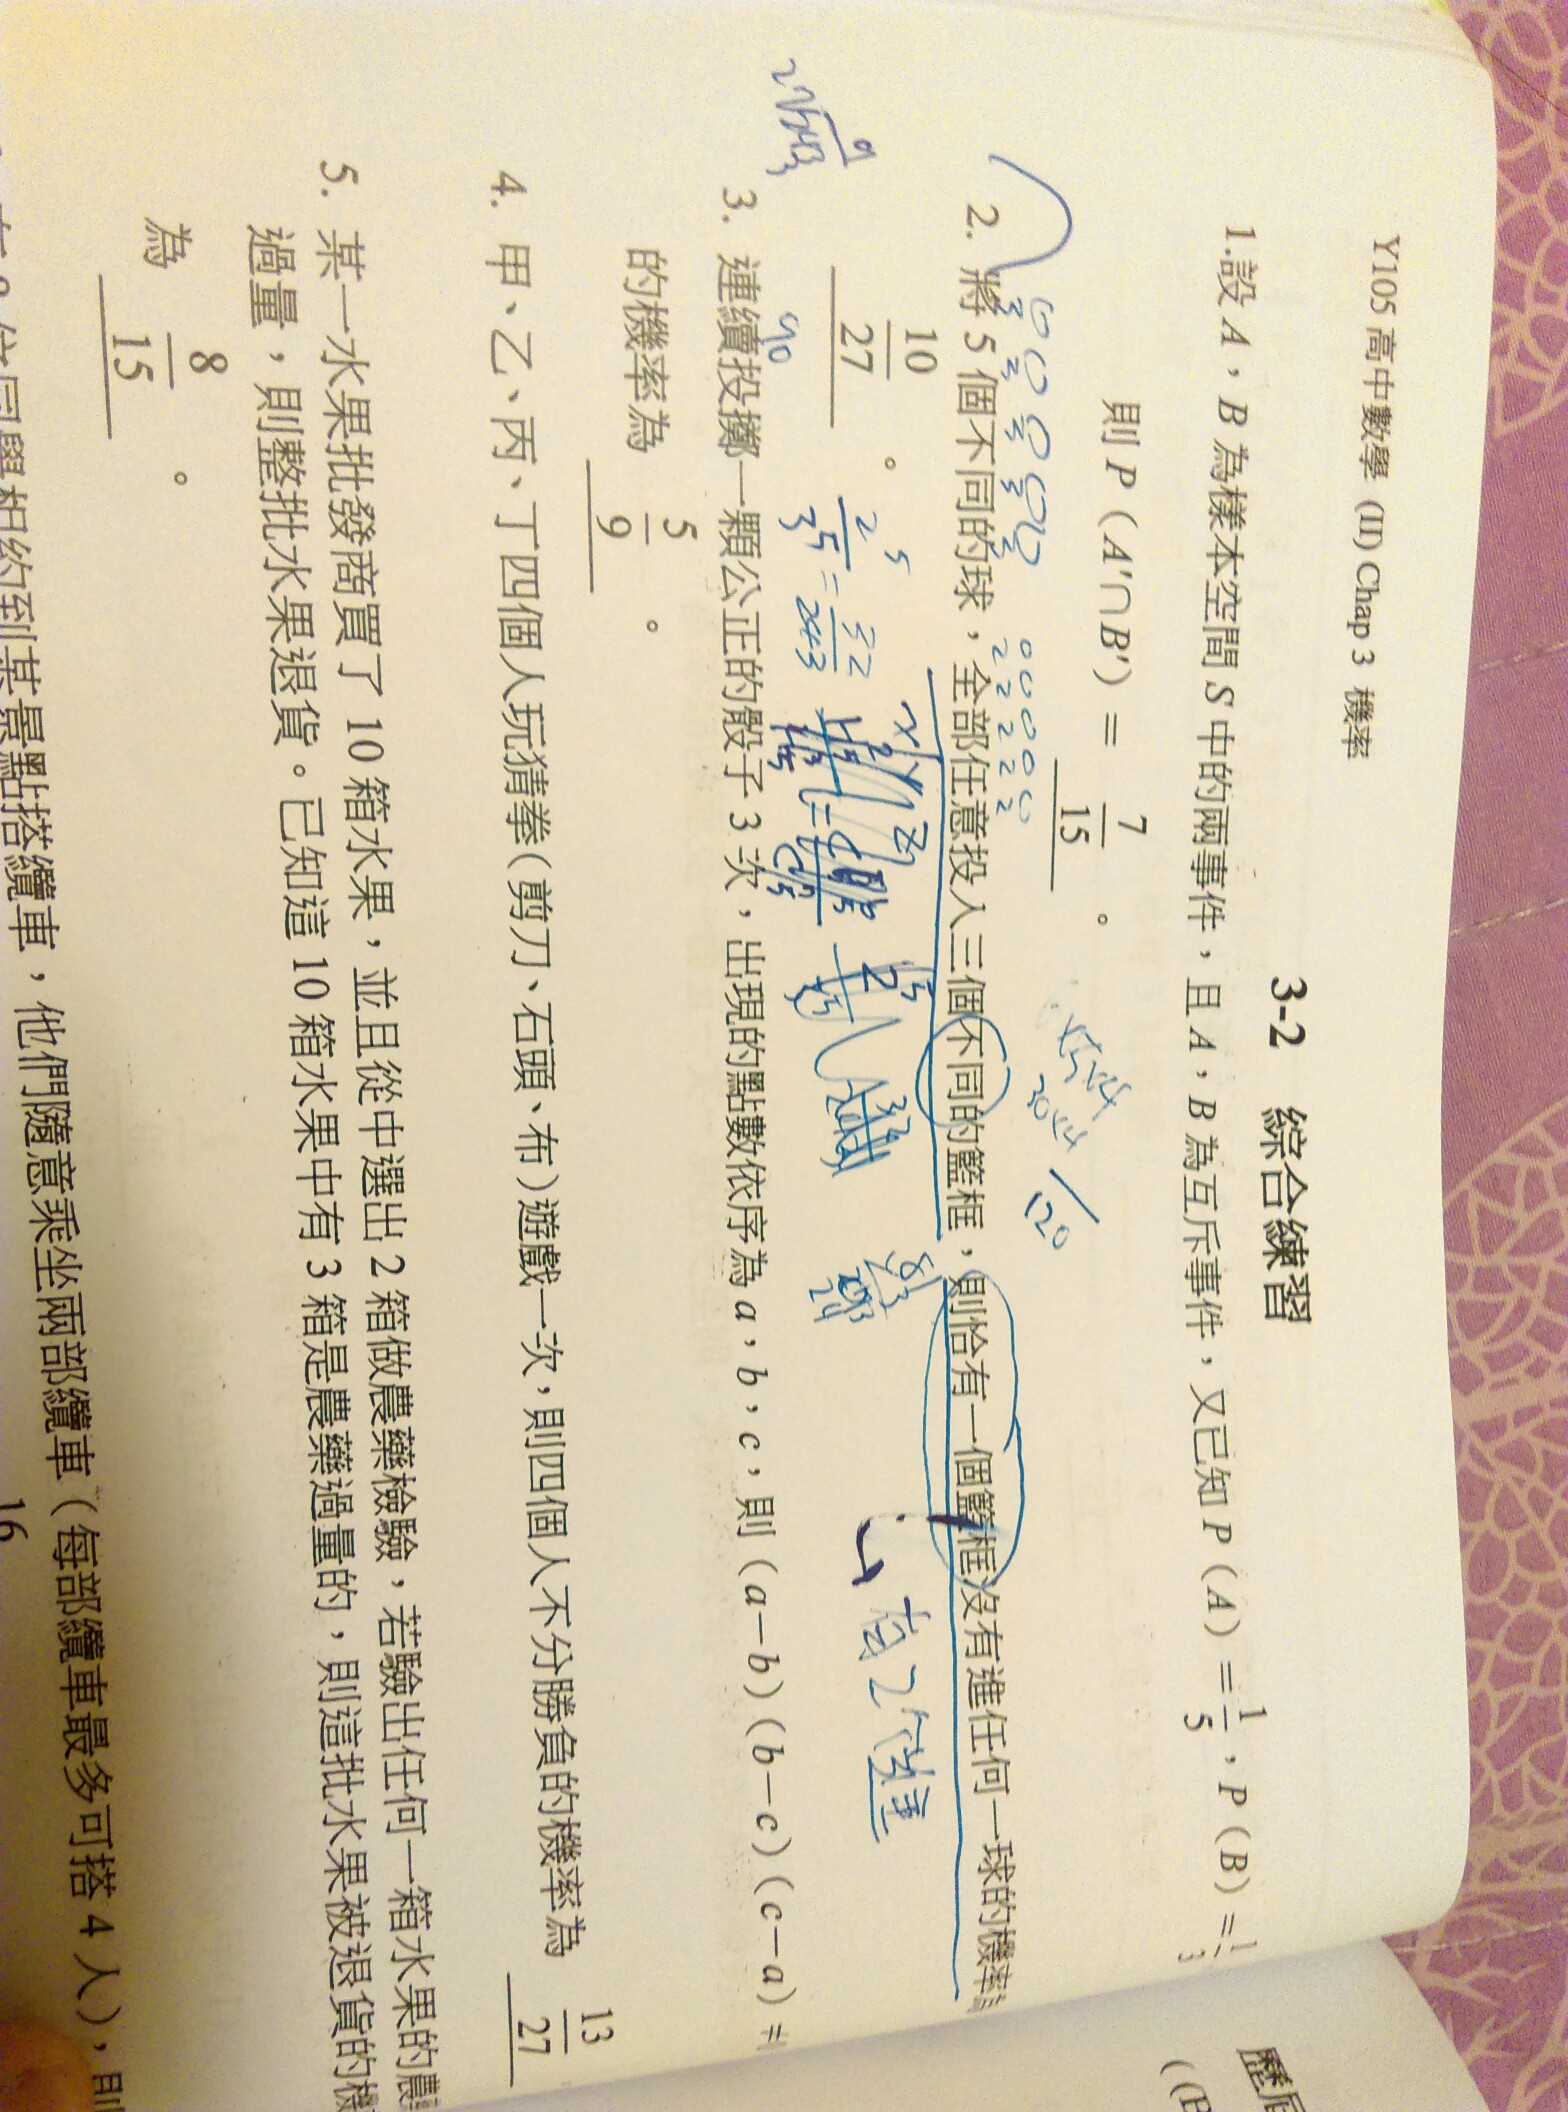 Y105 高中數學 (II) Chap 3 機率
3-2 綜合練習
1.設 A，B 為樣本空間 S 中的兩事件，且 A，B 為互斥事件，又已知 P（A）＝1/5，P（B）＝1/3
則 P（A'∩B'）＝ 7/15 。
2. 將 5 個不同的球，全部任意投入三個不同的籃框，則恰有一個籃框沒有進任何一球的機率
10/27 。
2^5/3^5 = 32/243
有2個進
3. 連續投擲一顆公正的骰子 3 次，出現的點數依序為 a，b，c，則（a－b）（b－c）（c－a）＝
的機率為 5/9 。
4. 甲、乙、丙、丁四個人玩猜拳（剪刀、石頭、布）遊戲一次，則四個人不分勝負的機率為 13/27
5. 某一水果批發商買了 10 箱水果，並且從中選出 2 箱做農藥檢驗，若驗出任何一箱水果的農
過量，則整批水果退貨。已知這 10 箱水果中有 3 箱是農藥過量的，則這批水果被退貨的機
為 8/15 。
位同學相約到某景點搭纜車，他們隨意乘坐兩部纜車（每部纜車最多可搭 4 人），則
16